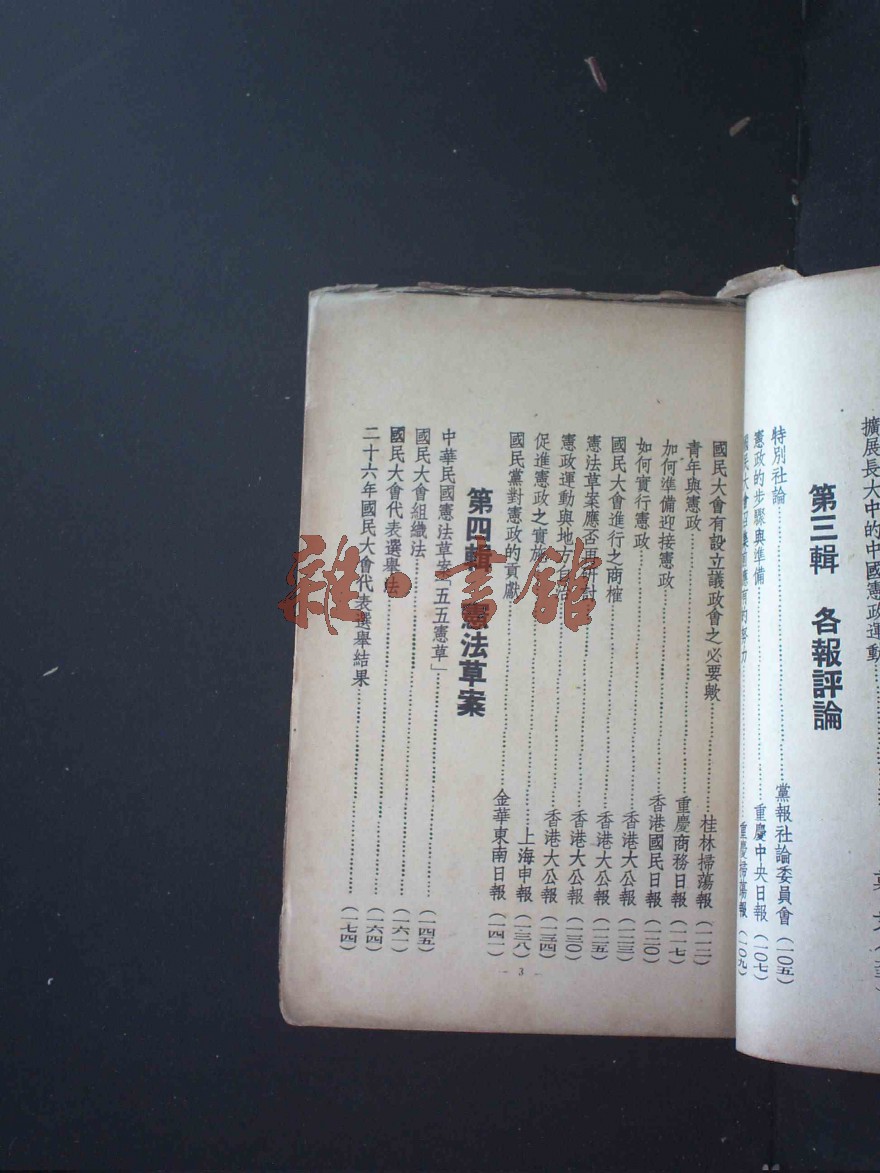 擴展長大中的中國憲政運動
第三輯 各報評論
特別社論 黨報社論委員會(一〇五)
憲政的步驟與準備 重慶中央日報(一〇七)
國民大會召集前應有的努力 重慶掃蕩報(一〇九)
國民大會有設立議政會之必要歟 桂林掃蕩報(一一二)
青年與憲政 重慶商務日報(一一七)
如何準備迎接憲政 香港國民日報(一二〇)
如何實行憲政 香港大公報(一二三)
國民大會進行之商榷 香港大公報(一二五)
憲法草案應否再研討 香港大公報(一三〇)
憲政運動與地方自治 香港大公報(一三四)
促進憲政之實施 上海申報(一三八)
國民黨對憲政的貢獻 金華東南日報(一四一)
第四輯 憲法草案
中華民國憲法草案「五五憲草」(一四五)
國民大會組織法(一六一)
國民大會代表選舉法(一六四)
二十六年國民大會代表選舉結果(一七四)
- 3 -
雜·書館